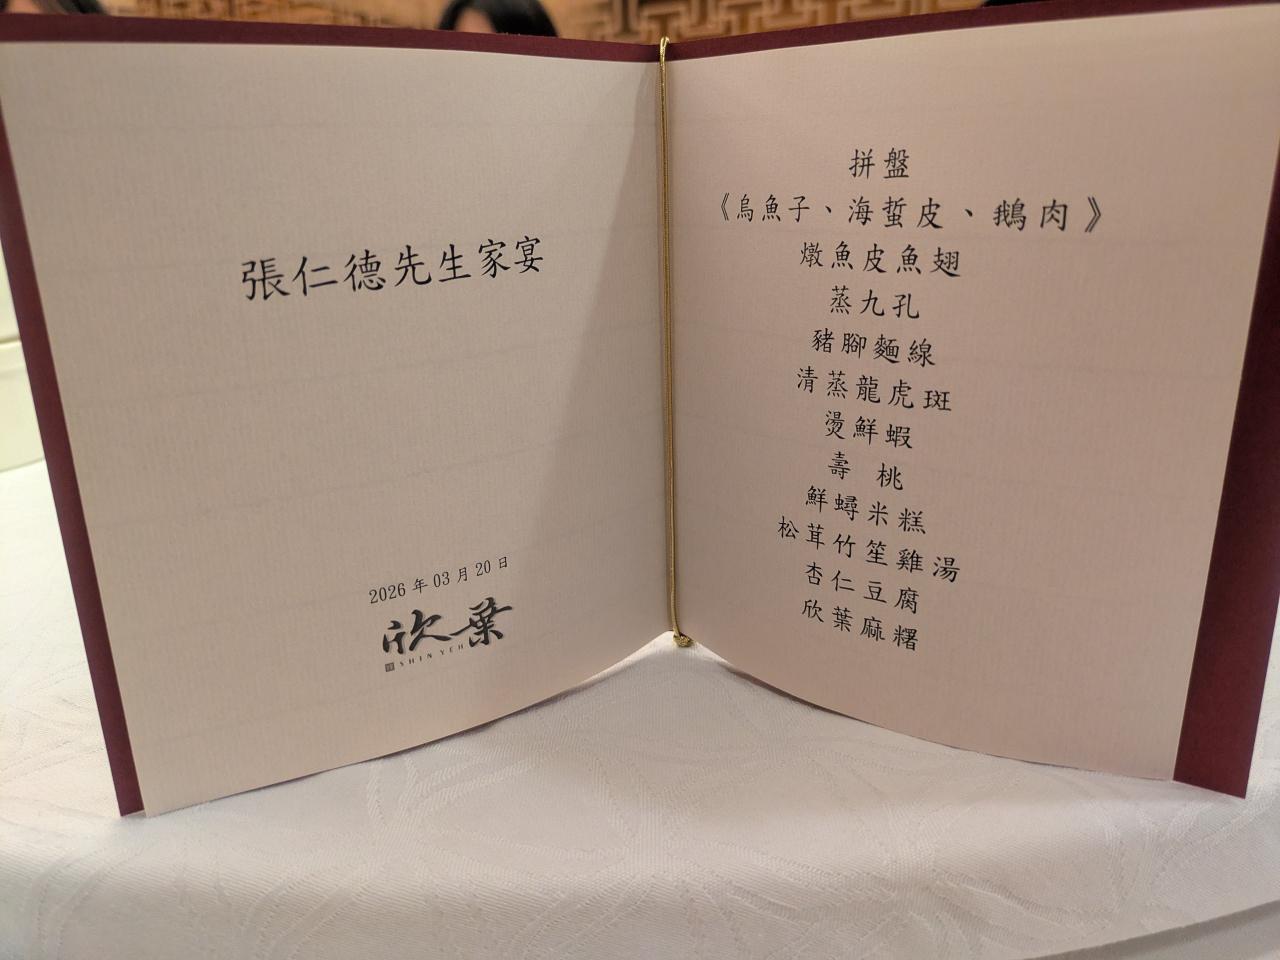 張仁德先生家宴
2026 年 03 月 20 日
欣葉
SHIN YEH
拼盤
《烏魚子、海蜇皮、鵝肉》
燉魚皮魚翅
蒸九孔
豬腳麵線
清蒸龍虎斑
燙鮮蝦
壽 桃
鮮蟳米糕
松茸竹笙雞湯
杏仁豆腐
欣葉麻糬